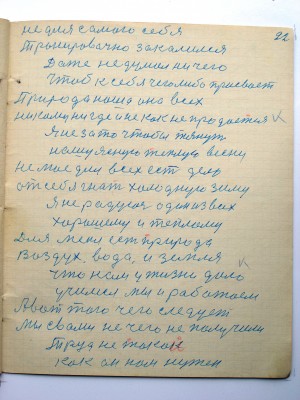 22
не для самого себя
Тронировочно закалился
Даже не думол ни чего
Чтоб к себя чего либо присвоет
Природа наша она всех
никому ни где и не как не продается
Я не за то чтобы тянут
нашу ясную теплую весну
не мое для всех ест дело
от себя гнат холодную зиму
Я не радуюс один из вас
хорошему и теплому
Для меня ест природа
Воздух, вода, и земля
Что нам у жизни дало
учимся мы и работаем
А вот того чего следует
Мы с вами не чего не получили
Труд не такой
как он нам нужен